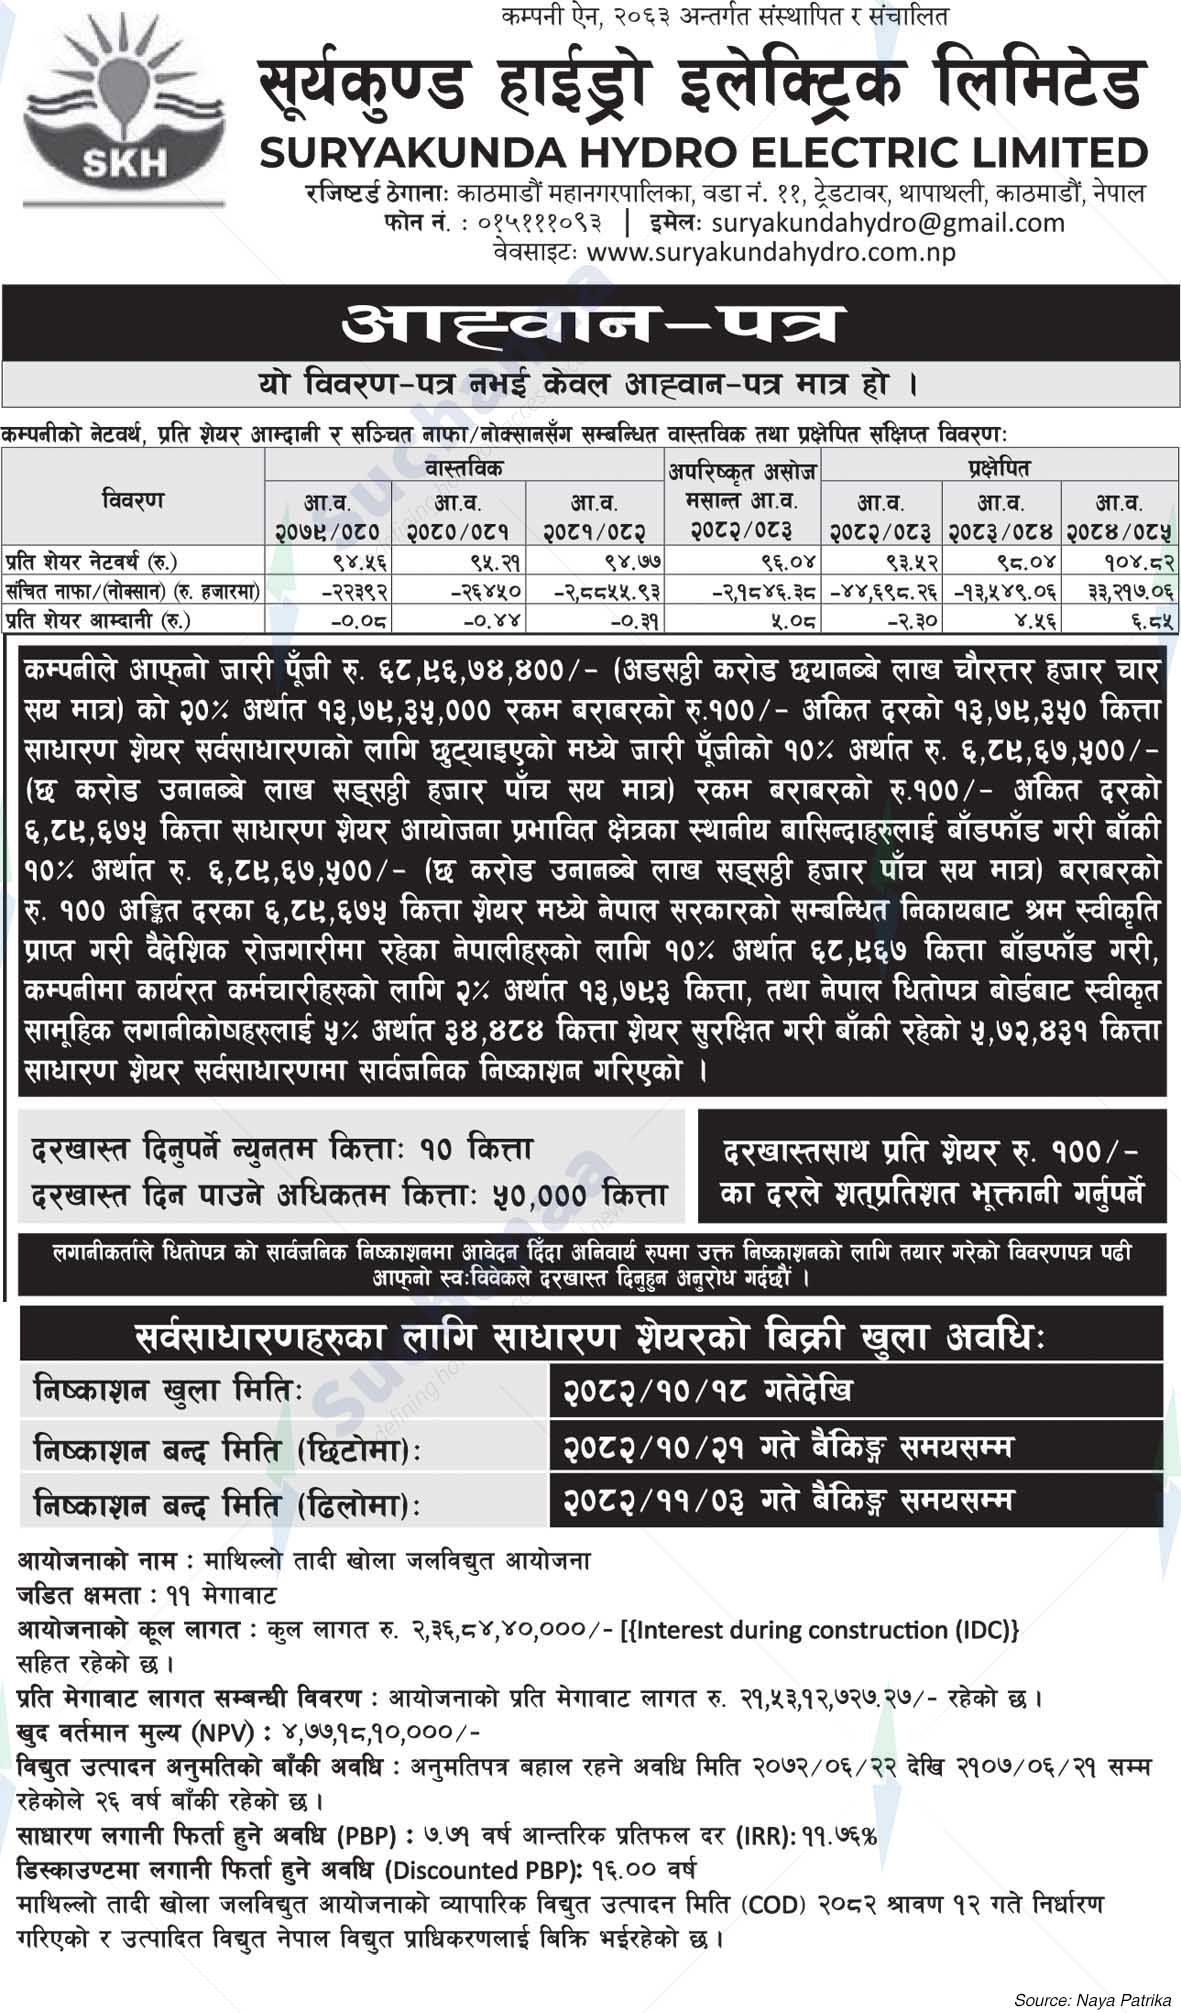 कम्पनी ऐन, २०६३ अन्तर्गत संस्थापित र संचालित
SKH
सूर्यकुण्ड हाईड्रो इलेक्ट्रिक लिमिटेड
SURYAKUNDA HYDRO ELECTRIC LIMITED
रजिष्टर्ड ठेगानाः काठमाडौं महानगरपालिका, वडा नं. ११, ट्रेडटावर, थापाथली, काठमाडौं, नेपाल
फोन नं. : ०१५१११०९३ | इमेलः suryakundahydro@gmail.com
वेवसाइटः www.suryakundahydro.com.np
आह्वान-पत्र
यो विवरण-पत्र नभई केवल आह्वान-पत्र मात्र हो ।
कम्पनीको नेटवर्थ, प्रति शेयर आम्दानी र सञ्चित नाफा/नोक्सानसँग सम्बन्धित वास्तविक तथा प्रक्षेपित संक्षिप्त विवरणः
विवरण वास्तविक अपरिष्कृत असोज मसान्त आ.व. २०८२/०८३ प्रक्षेपित
आ.व. २०७९/०८० आ.व. २०८०/०८१ आ.व. २०८१/०८२ आ.व. २०८२/०८३ आ.व. २०८३/०८४ आ.व. २०८४/०८५
प्रति शेयर नेटवर्थ (रु.) ९४.५६ ९५.२१ ९४.७७ ९६.०४ ९३.५२ ९८.०४ १०४.८२
संचित नाफा/(नोक्सान) (रु. हजारमा) -२२३९२ -२६४५० -२,८८५५.९३ -२,१८४६.३८ -४४,६९८.२६ -१३,५४९.०६ ३३,२१७.०६
प्रति शेयर आम्दानी (रु.) -०.०८ -०.४४ -०.३१ ५.०८ -२.३० ४.५६ ६.८५
कम्पनीले आफ्नो जारी पूँजी रु. ६८,९६,७४,४००/- (अडसठ्ठी करोड छयानब्बे लाख चौरत्तर हजार चार
सय मात्र) को २०% अर्थात १३,७९,३५,००० रकम बराबरको रु.१००/- अंकित दरको १३,७९,३५० कित्ता
साधारण शेयर सर्वसाधारणको लागि छुट्याइएको मध्ये जारी पूँजीको १०% अर्थात रु. ६,८९,६७,५००/-
(छ करोड उनानब्बे लाख सड्सठ्ठी हजार पाँच सय मात्र) रकम बराबरको रु.१००/- अंकित दरको
६,८९,६७५ कित्ता साधारण शेयर आयोजना प्रभावित क्षेत्रका स्थानीय बासिन्दाहरुलाई बाँडफाँड गरी बाँकी
१०% अर्थात रु. ६,८९,६७,५००/- (छ करोड उनानब्बे लाख सड्सठ्ठी हजार पाँच सय मात्र) बराबरको
रु. १०० अङ्कित दरका ६,८९,६७५ कित्ता शेयर मध्ये नेपाल सरकारको सम्बन्धित निकायबाट श्रम स्वीकृति
प्राप्त गरी वैदेशिक रोजगारीमा रहेका नेपालीहरुको लागि १०% अर्थात ६८,९६७ कित्ता बाँडफाँड गरी,
कम्पनीमा कार्यरत कर्मचारीहरुको लागि २% अर्थात १३,७९३ कित्ता, तथा नेपाल धितोपत्र बोर्डबाट स्वीकृत
सामूहिक लगानीकोषहरुलाई ५% अर्थात ३४,४८४ कित्ता शेयर सुरक्षित गरी बाँकी रहेको ५,७२,४३१ कित्ता
साधारण शेयर सर्वसाधारणमा सार्वजनिक निष्काशन गरिएको ।
दरखास्त दिनुपर्ने न्युनतम कित्ताः १० कित्ता
दरखास्त दिन पाउने अधिकतम कित्ताः ५०,००० कित्ता
दरखास्तसाथ प्रति शेयर रु. १००/-
का दरले शत्प्रतिशत भूक्तानी गर्नुपर्ने
लगानीकर्ताले धितोपत्र को सार्वजनिक निष्काशनमा आवेदन दिँदा अनिवार्य रुपमा उक्त निष्काशनको लागि तयार गरेको विवरणपत्र पढी
आफ्नो स्वःविवेकले दरखास्त दिनुहुन अनुरोध गर्दछौं ।
सर्वसाधारणहरुका लागि साधारण शेयरको बिक्री खुला अवधिः
निष्काशन खुला मितिः २०८२/१०/१८ गतेदेखि
निष्काशन बन्द मिति (छिटोमा): २०८२/१०/२१ गते बैंकिङ्ग समयसम्म
निष्काशन बन्द मिति (ढिलोमा): २०८२/११/०३ गते बैंकिङ्ग समयसम्म
आयोजनाको नाम : माथिल्लो तादी खोला जलविद्युत आयोजना
जडित क्षमता : ११ मेगावाट
आयोजनाको कूल लागत : कुल लागत रु. २,३६,८४,४०,०००/- [{Interest during construction (IDC)}
सहित रहेको छ ।
प्रति मेगावाट लागत सम्बन्धी विवरण : आयोजनाको प्रति मेगावाट लागत रु. २१,५३,१२,७२७.२७/- रहेको छ ।
खुद वर्तमान मुल्य (NPV) : ४,७७,१८,१०,०००/-
विद्युत उत्पादन अनुमतिको बाँकी अवधि : अनुमतिपत्र बहाल रहने अवधि मिति २०७२/०६/२२ देखि २१०७/०६/२१ सम्म
रहेकोले २६ वर्ष बाँकी रहेको छ ।
साधारण लगानी फिर्ता हुने अवधि (PBP) : ७.७१ वर्ष आन्तरिक प्रतिफल दर (IRR): ११.७६%
डिस्काउण्टमा लगानी फिर्ता हुने अवधि (Discounted PBP): १६.०० वर्ष
माथिल्लो तादी खोला जलविद्युत आयोजनाको व्यापारिक विद्युत उत्पादन मिति (COD) २०८२ श्रावण १२ गते निर्धारण
गरिएको र उत्पादित विद्युत नेपाल विद्युत प्राधिकरणलाई बिक्रि भईरहेको छ ।
Source: Naya Patrika